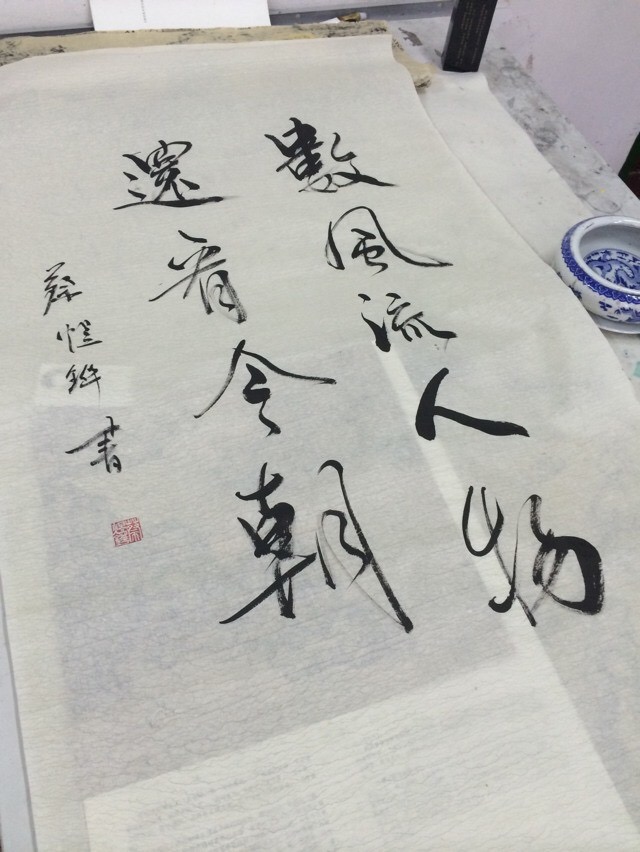 數風流人物
還看今朝
蔡 書